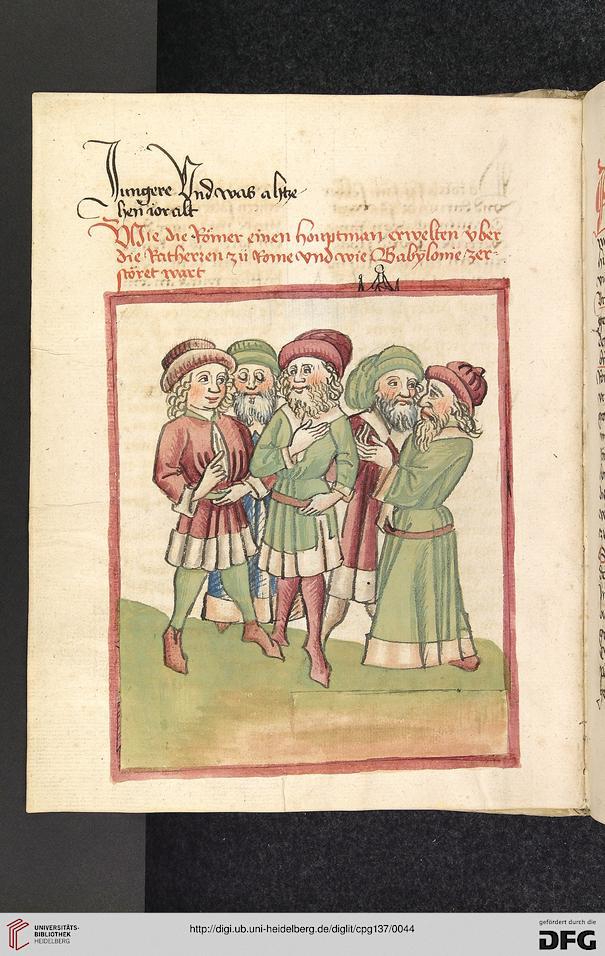 Jungere Vnd was ahtze-
hen ior alt
Wie die Römer einen houptman erwelten vber
die Ratherren zü Rome vnd wie Babylonie zer-
störet wart
UNIVERSITÄTS-
BIBLIOTHEK
HEIDELBERG
http://digi.ub.uni-heidelberg.de/diglit/cpg137/0044
gefördert durch die
DFG